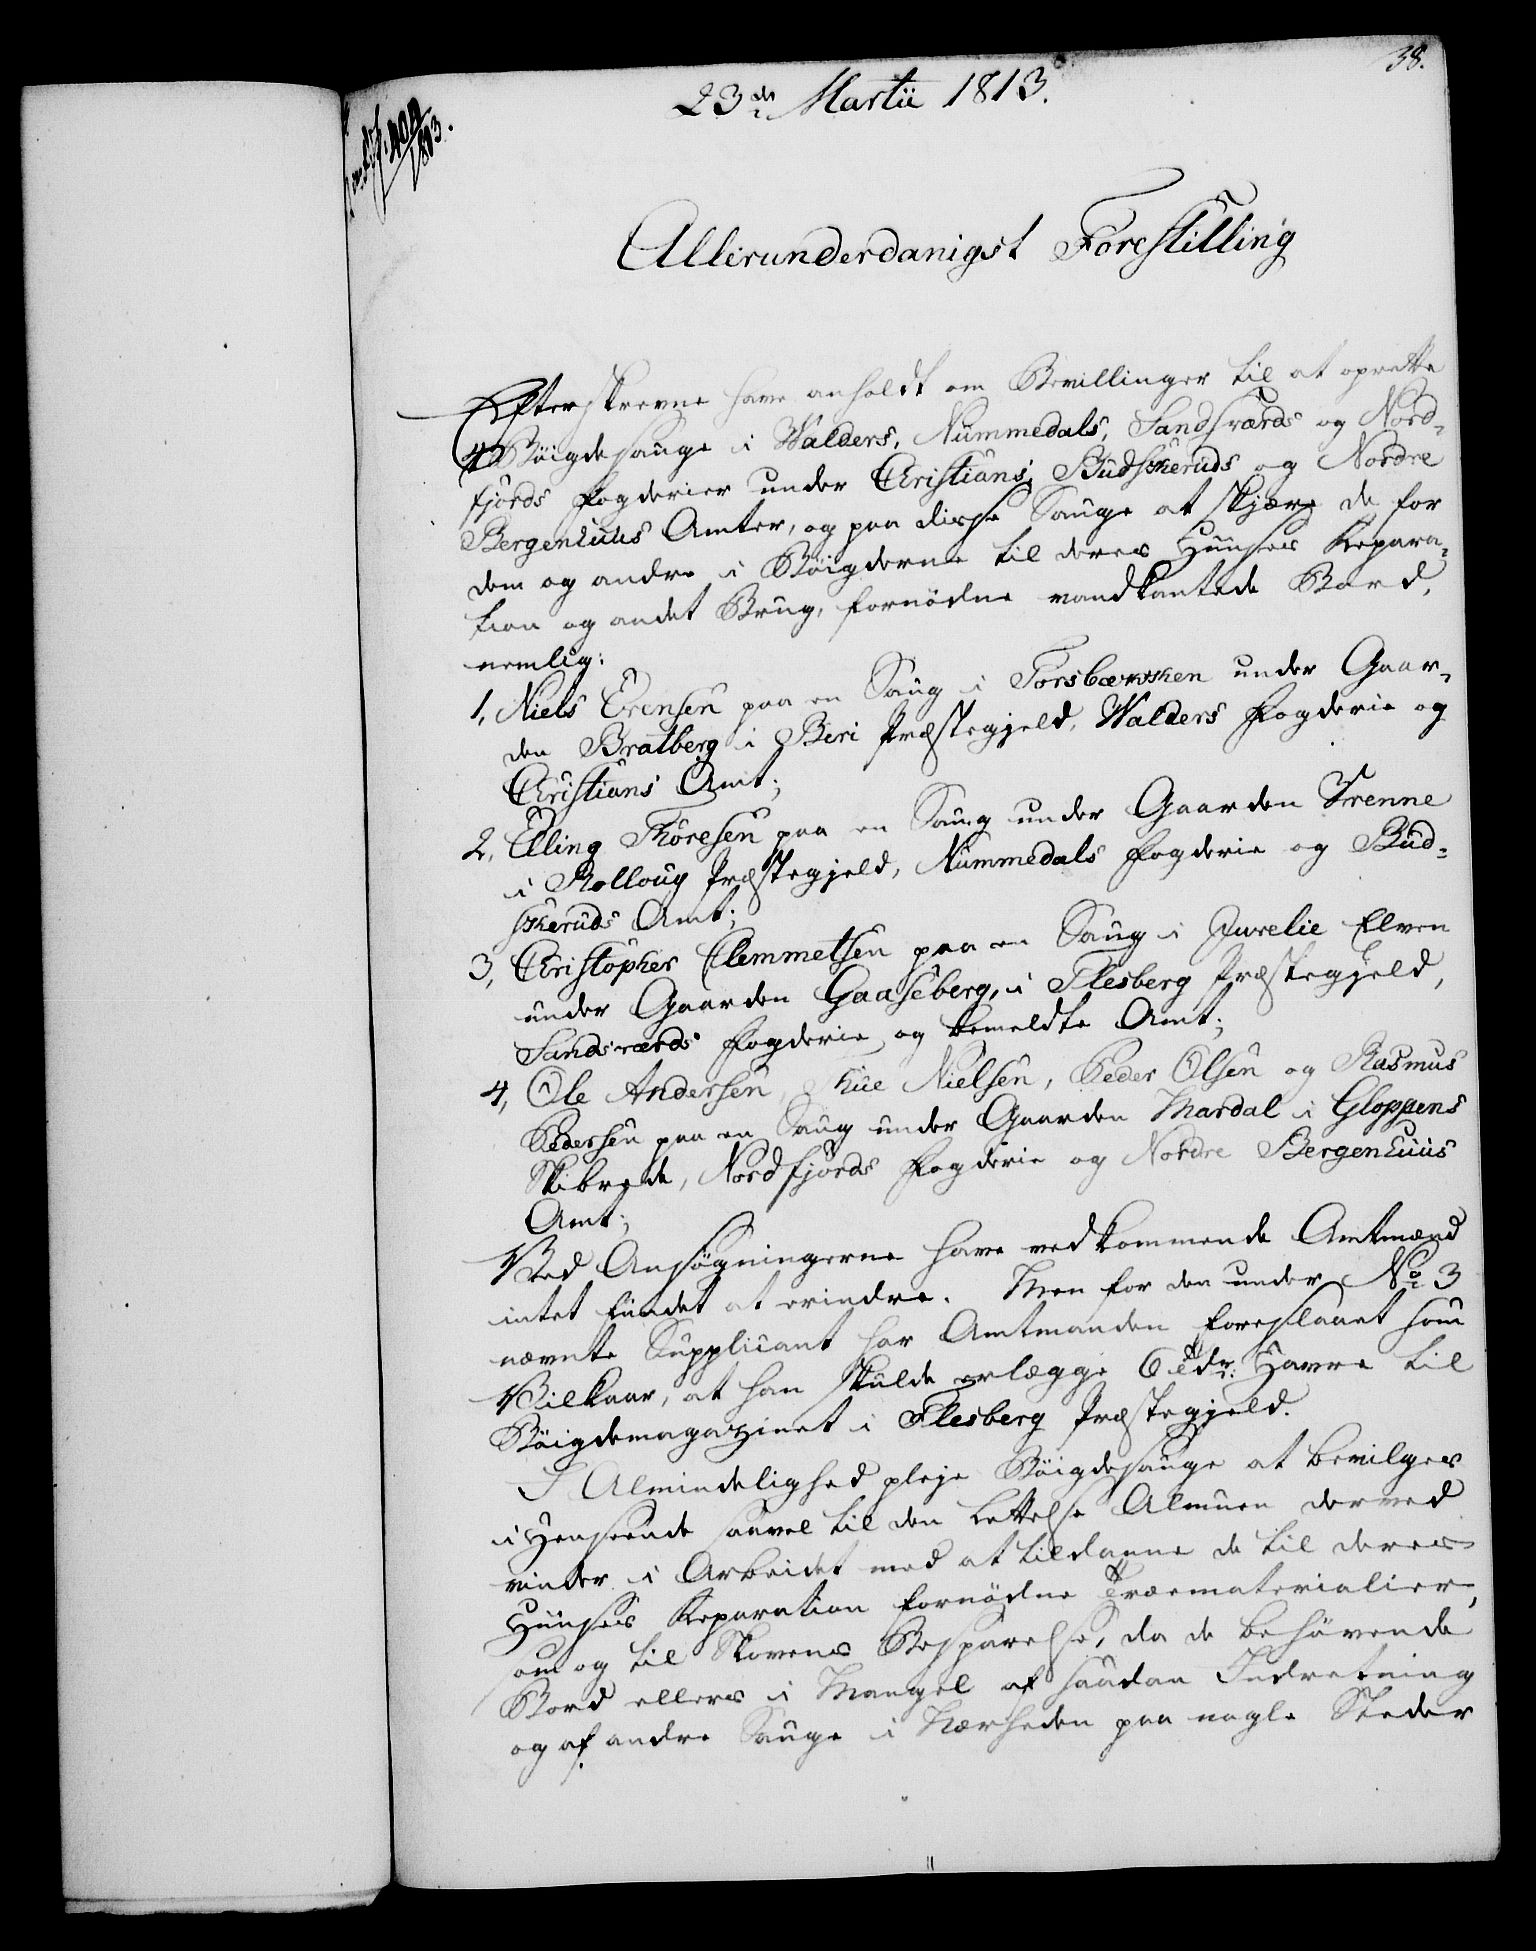 38.
23de Martii 1813.
Allerunderdanigst Forestilling
Efterskrevne have anholdt om Bevillinger til at oprette
4 Bøigdesauge i Walders, Nummedals, Sandsværds og Nord-
fjords Fogderier under Christians, Budscheruds og Nordre
Bergenhuus Amter, og paa disse Sauge at skjære de for
dem og andre i Bøigderne til deres Huuses Repara-
tion og andet Brug, fornødne vandkantede Bord,
nemlig:
1, Niels Evensen paa en Saug i under Gaar-
den Bratberg i Biri Præstegjeld, Walders Fogderie og
Christians Amt;
2, Elling Thoresen paa en Saug under Gaarden Trenne
i Rolloug Præstegjeld, Nummedals Fogderie og Bud-
scheruds Amt;
3, Christopher Clemmetsen paa en Saug i Jurelie Elven
under Gaarden Gaaseberg, i Flesberg Præstegjeld,
Sandsværds Fogderie og bemeldte Amt;
4, Ole Andersen, Thue Nielsen, Peder Olsen og Rasmus
Pedersen paa en Saug under Gaarden Mardal i Gloppens
Skibrede, Nordfjords Fogderie og Nordre Bergenhuus
Amt;
Ved Ansøgningerne have vedkommende Amtmænd
intet fundet at erindre. Men for den under No 3
nævnte Supplicant har Amtmanden foreslaaet som
Vilkaar, at han skulde erlægge 6 Tdr: Havre til
Bøigdemagazinet i Flesberg Præstegjeld.
I Almindelighed pleje Bøigdesauge at bevilges
i Henseende saavel til den Lettelse Almuen derved
vinder i Arbeidet med at tildanne de til deres
Huuses Reparation fornødne Træematerialier,
som og til Skovens Besparelse, da de behøvende
Bord ellers i Mangel af saadan Indretning
og af andre Sauge i Nærheden paa nogle Steder